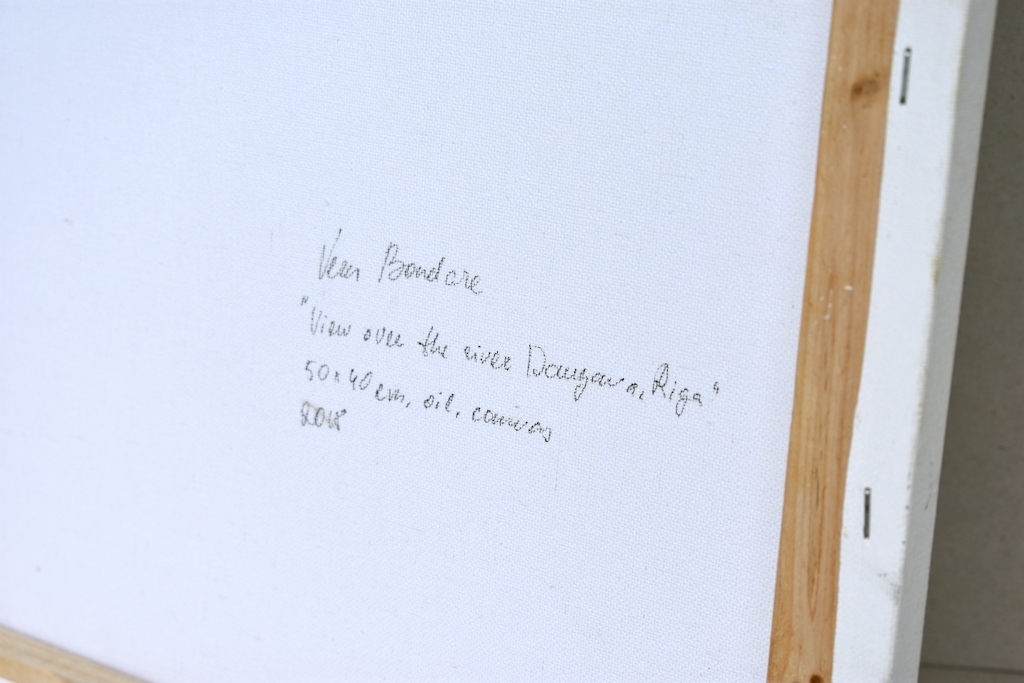 Vera Bondare
"View over the river Daugava, Riga"
50x40 cm, oil, canvas
2018